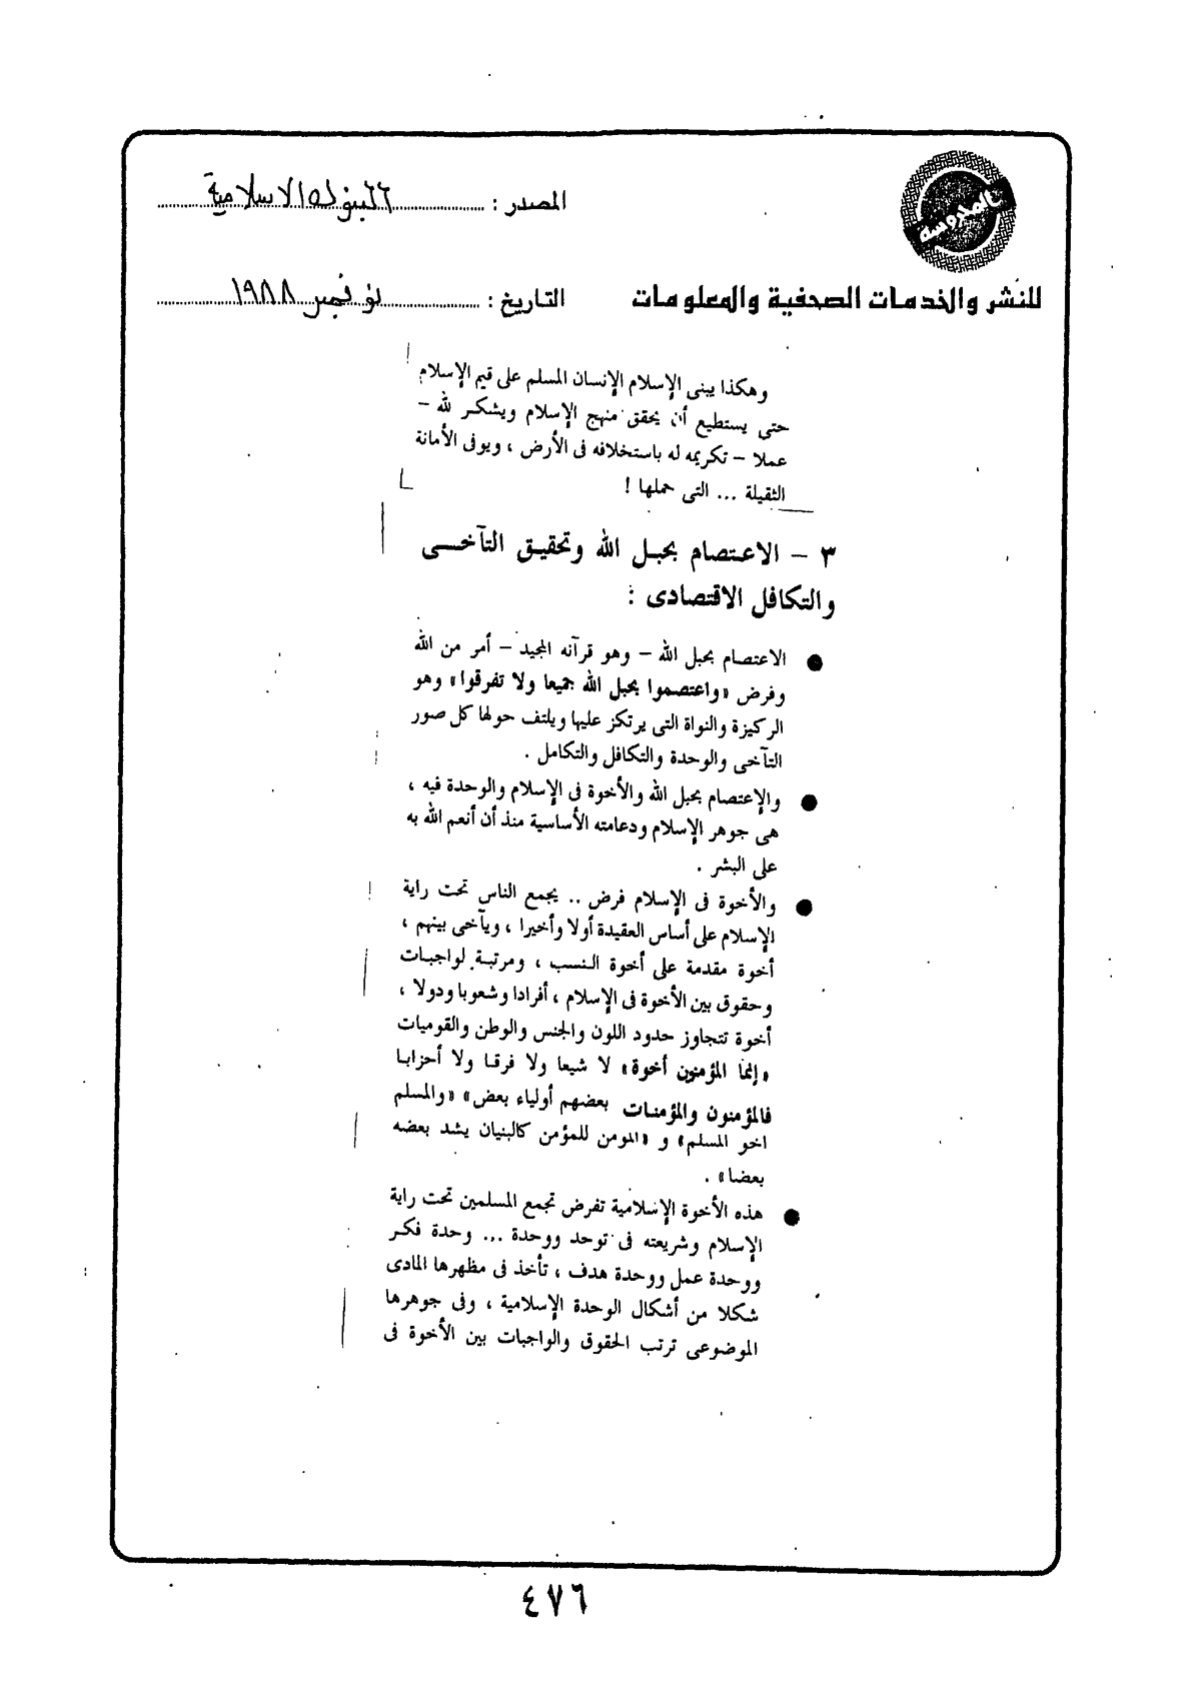 المحروسة
المصدر : البنوك الاسلامية
للنشر والخدمات الصحفية والمعلومات
التاريخ : نوفمبر ١٩٨٨
وهكذا يبنى الإسلام الإنسان المسلم على قيم الإسلام
حتى يستطيع أن يحقق منهج الإسلام ويشكر لله –
عملا – تكريمه له باستخلافه فى الأرض ، ويوفى الأمانة
الثقيلة ... التى حملها !
٣ – الاعتصام بحبل الله وتحقيق التآخى
والتكافل الاقتصادى :
● الاعتصام بحبل الله – وهو قرآنه المجيد – أمر من الله
وفرض «واعتصموا بحبل الله جميعا ولا تفرقوا» وهو
الركيزة والنواة التى يرتكز عليها ويلتف حولها كل صور
التآخى والوحدة والتكافل والتكامل .
● والإعتصام بحبل الله والأخوة فى الإسلام والوحدة فيه ،
هى جوهر الإسلام ودعامته الأساسية منذ أن أنعم الله به
على البشر .
● والأخوة فى الإسلام فرض .. يجمع الناس تحت راية
الإسلام على أساس العقيدة أولا وأخيرا ، ويآخى بينهم ،
أخوة مقدمة على أخوة النسب ، ومرتبة لواجبات
وحقوق بين الأخوة فى الإسلام ، أفرادا وشعوبا ودولا ،
أخوة تتجاوز حدود اللون والجنس والوطن والقوميات
«إنما المؤمنون أخوة» لا شيعا ولا فرقا ولا أحزابا
فالمؤمنون والمؤمنات بعضهم أولياء بعض» «والمسلم
اخو المسلم» و «المومن للمؤمن كالبنيان يشد بعضه
بعضا» .
● هذه الأخوة الإسلامية تفرض تجمع المسلمين تحت راية
الإسلام وشريعته فى توحد ووحدة ... وحدة فكر
ووحدة عمل ووحدة هدف ، تأخذ فى مظهرها المادى
شكلا من أشكال الوحدة الإسلامية ، وفى جوهرها
الموضوعى ترتب الحقوق والواجبات بين الأخوة فى
٤٧٦